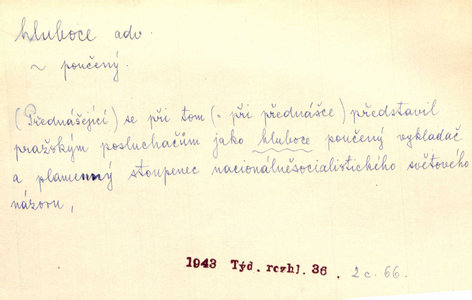 hluboce adv.
~ poučený.
(Přednášející) se při tom (= při přednášce) představil
pražským posluchačům jako hluboce poučený vykladač
a plamenný stoupenec nacionálněsocialistického světového
názoru,
1943 Týd. rozhl. 36. 2 c. 66.